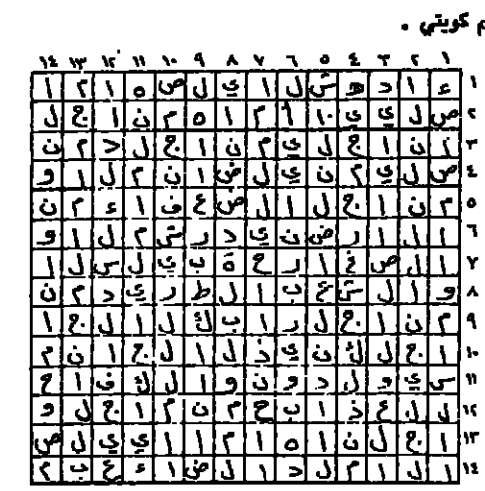 م كويتي .
١ ٢ ٣ ٤ ٥ ٦ ٧ ٨ ٩ ١٠ ١١ ١٢ ١٣ ١٤
١ ا م ا ه ص ل ي ا ل ش ه د ا ء
٢ ل ج ا ن م ه ا م أ ا ي ي ل ص
٣ ن م د ل ج ا ن م ي ل ج ا ن م
٤ و ا ل م ن ا ض ل ي ن م ي ل ص
٥ ن م ء ا ف ع ض ل ا ل ج ا ن م
٦ و ا ل م ش ر د ي ن ض ر ا ل ا
٧ ا ل س ل ي ب ة ح ر ا غ ص ل ا
٨ ن م د ي ر ط ل ا ب ع ش ل ا و
٩ ا ج ل ا ل ك ب ا ر ل ج ا ن م
١٠ م ن ا ج ل ا ل ذ ي ن ك ل ج ا
١١ ح ا ف ك ل ا و ن و د ل و ي س
١٢ و ل ج ا م ن م ح ب ا ذ ع ل ل
١٣ ص ل ي ي ا ا م ا ه ا ن ل ج ا
١٤ م ب ع ء ا ض ل ا د ل م ا ل ا